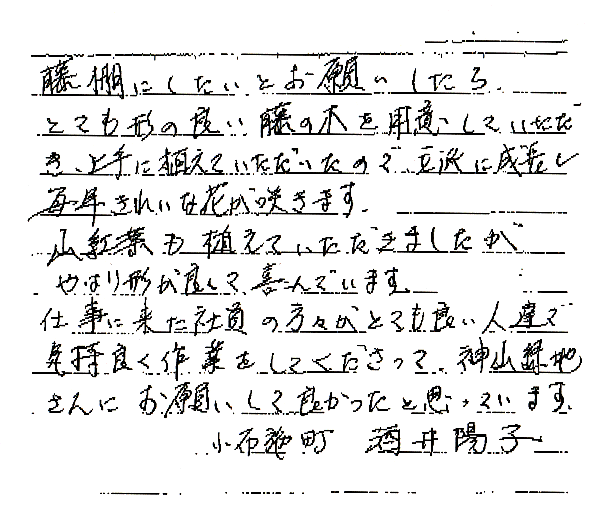 藤棚にしたいとお願いしたら、
とても形の良い藤の木を用意していただ
き、上手に植えていただいたので立派に成長し
毎年きれいな花が咲きます。
山紅葉も植えていただきましたが
やはり形が良くて喜んでいます。
仕事に来た社員の方々がとても良い人達で
気持良く作業をしてくださって、神山緑地
さんにお願いして良かったと思っています。
小石 町 酒井陽子